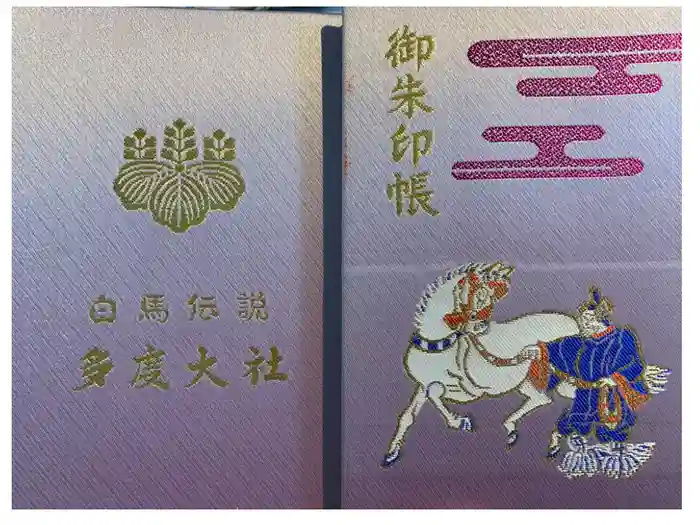 御朱印帳
白馬伝説
多度大社